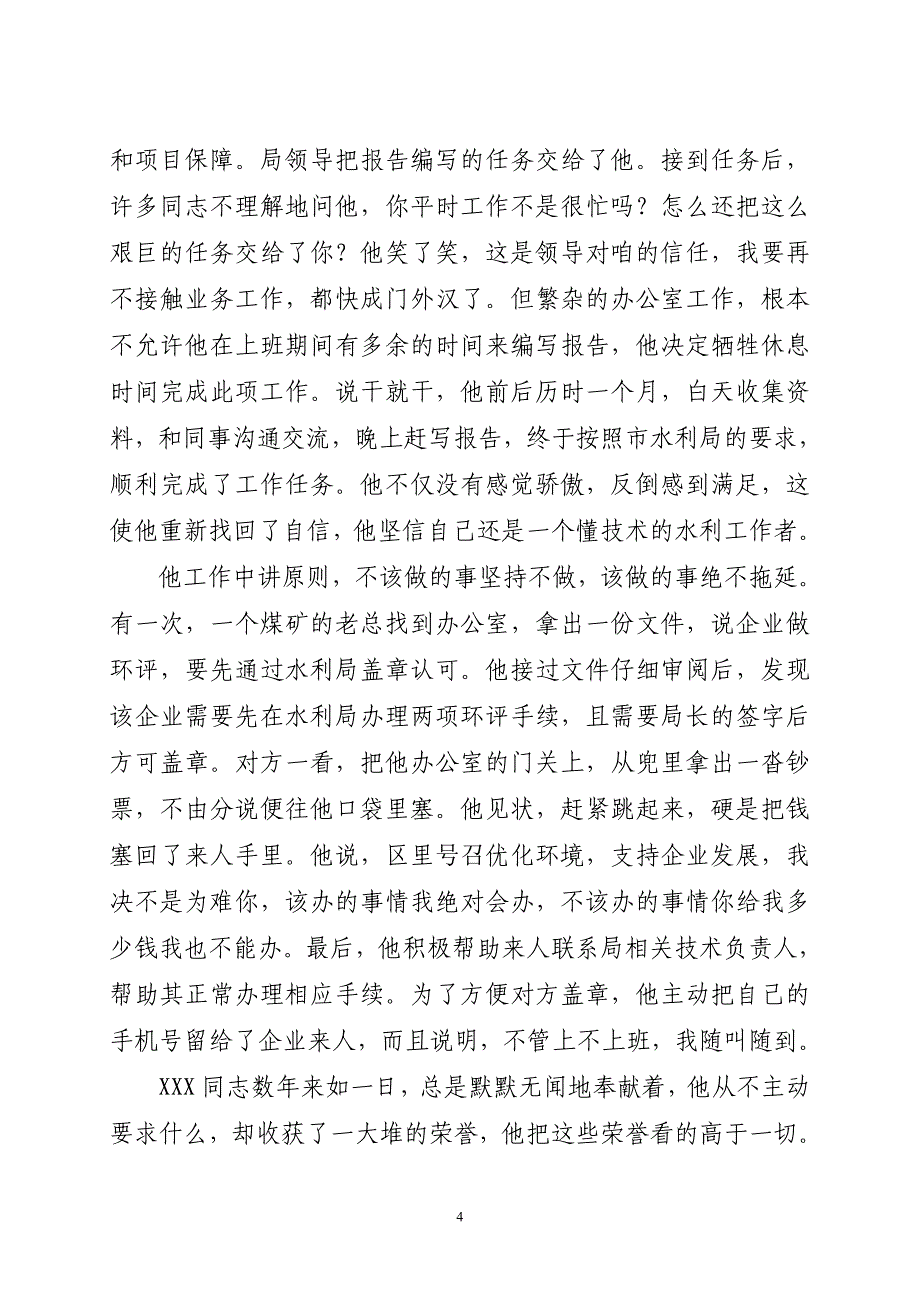 和项目保障。局领导把报告编写的任务交给了他。接到任务后，
许多同志不理解地问他，你平时工作不是很忙吗？怎么还把这么
艰巨的任务交给了你？他笑了笑，这是领导对咱的信任，我要再
不接触业务工作，都快成门外汉了。但繁杂的办公室工作，根本
不允许他在上班期间有多余的时间来编写报告，他决定牺牲休息
时间完成此项工作。说干就干，他前后历时一个月，白天收集资
料，和同事沟通交流，晚上赶写报告，终于按照市水利局的要求，
顺利完成了工作任务。他不仅没有感觉骄傲，反倒感到满足，这
使他重新找回了自信，他坚信自己还是一个懂技术的水利工作者。
他工作中讲原则，不该做的事坚持不做，该做的事绝不拖延。
有一次，一个煤矿的老总找到办公室，拿出一份文件，说企业做
环评，要先通过水利局盖章认可。他接过文件仔细审阅后，发现
该企业需要先在水利局办理两项环评手续，且需要局长的签字后
方可盖章。对方一看，把他办公室的门关上，从兜里拿出一沓钞
票，不由分说便往他口袋里塞。他见状，赶紧跳起来，硬是把钱
塞回了来人手里。他说，区里号召优化环境，支持企业发展，我
决不是为难你，该办的事情我绝对会办，不该办的事情你给我多
少钱我也不能办。最后，他积极帮助来人联系局相关技术负责人，
帮助其正常办理相应手续。为了方便对方盖章，他主动把自己的
手机号留给了企业来人，而且说明，不管上不上班，我随叫随到。
XXX 同志数年来如一日，总是默默无闻地奉献着，他从不主动
要求什么，却收获了一大堆的荣誉，他把这些荣誉看的高于一切。
4